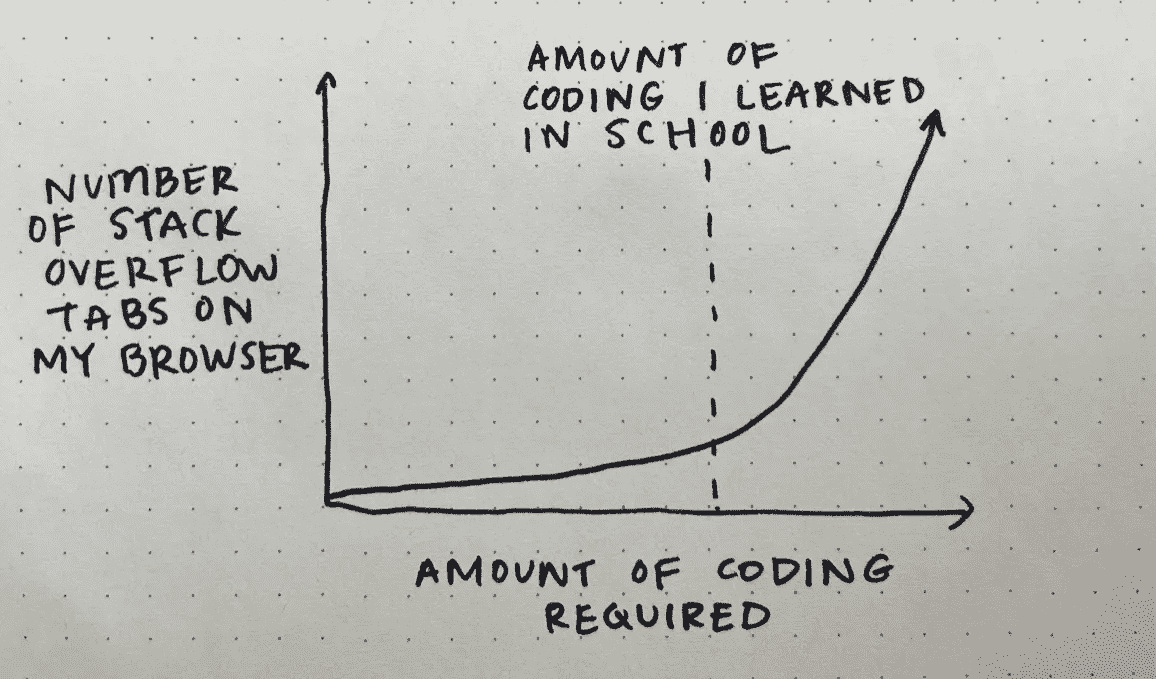 AMOUNT OF
CODING I LEARNED
IN SCHOOL
NUMBER
OF STACK
OVERFLOW
TABS ON
MY BROWSER
AMOUNT OF CODING
REQUIRED